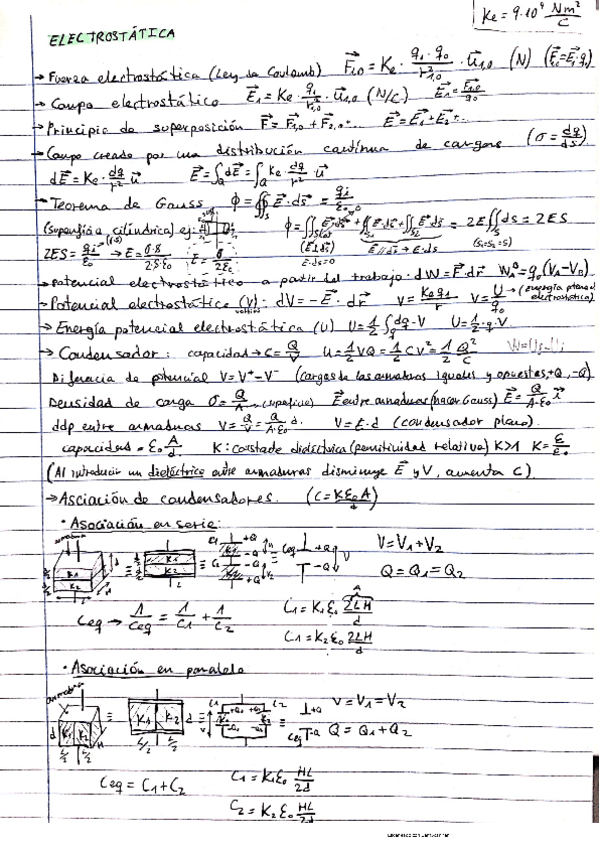 Ke = 9·10⁹ Nm²/C
ELECTROSTÁTICA
→ Fuerza electrostática (Ley de Coulomb) F⃗₁,₀ = Ke · q₁·q₀/r²₁,₀ · u⃗₁,₀ (N) (F⃗₁,₀=E⃗₁·q₀)
→ Campo electrostático E⃗₁ = Ke · q₁/r²₁,₀ · u⃗₁,₀ (N/C) E⃗₁ = F⃗₁,₀/q₀
→ Principio de superposición F⃗ = F⃗₁,₀ + F⃗₂,₀... E⃗ = E⃗₁ + E⃗₂...
→ Campo creado por una distribución continua de cargas (σ = dq/ds)
dE⃗ = Ke · dq/r² u⃗ E⃗ = ∫dE⃗ = ∫ Ke · dq/r² · u⃗
→ Teorema de Gauss ϕ = ∯ E⃗·ds⃗ = qi/ε₀
(superficie cilíndrica) ej: = 2E∬ds = 2ES
2ES = qi/ε₀
→ potencial electrostático a partir del trabajo · dW = F⃗·dr⃗
→ Potencial electrostático (V): dV = -E⃗ · dr⃗ V = Ke q₁/r V = U/q₀ → (Energía potencial electrostática)
→ Energía potencial electrostática (U) U = 1/2 ∫ dq·V U = 1/2 · q·V
→ Condensador: capacidad → C = Q/V U = 1/2 VQ = 1/2 CV² = 1/2 Q²/C
Diferencia de potencial V = V⁺ - V⁻ (cargas de las armaduras iguales y opuestas +Q, -Q)
Densidad de carga σ = Q/A (superficie) E⃗ entre armaduras (hacer Gauss) E⃗ = Q/A·ε₀
ddp entre armaduras V = Q/A·ε₀ d. V = E·d (condensador plano).
capacidad = ε₀ A/d K: constate dieléctrica (permitividad relativa) K>1 K = ε/ε₀
(Al introducir un dieléctrico entre armaduras disminuye E⃗ y V, aumenta C).
→ Asciación de condensadores. (C = Kε₀A/d)
· Asociación en serie:
K1 K2 Ceq +Q -Q V
V = V₁ + V₂
Q = Q₁ = Q₂
Ceq → 1/Ceq = 1/C₁ + 1/C₂
C₁ = K₁ε₀ 2LH/d
C₁ = K₂ε₀ 2LH/d
· Asociación en paralelo
K1 K2 d L/2 L/2 Ceq +Q -Q
V = V₁ = V₂
Q = Q₁ + Q₂
Ceq = C₁ + C₂
C₁ = K₁ε₀ HL/2d
C₂ = K₂ε₀ HL/2d